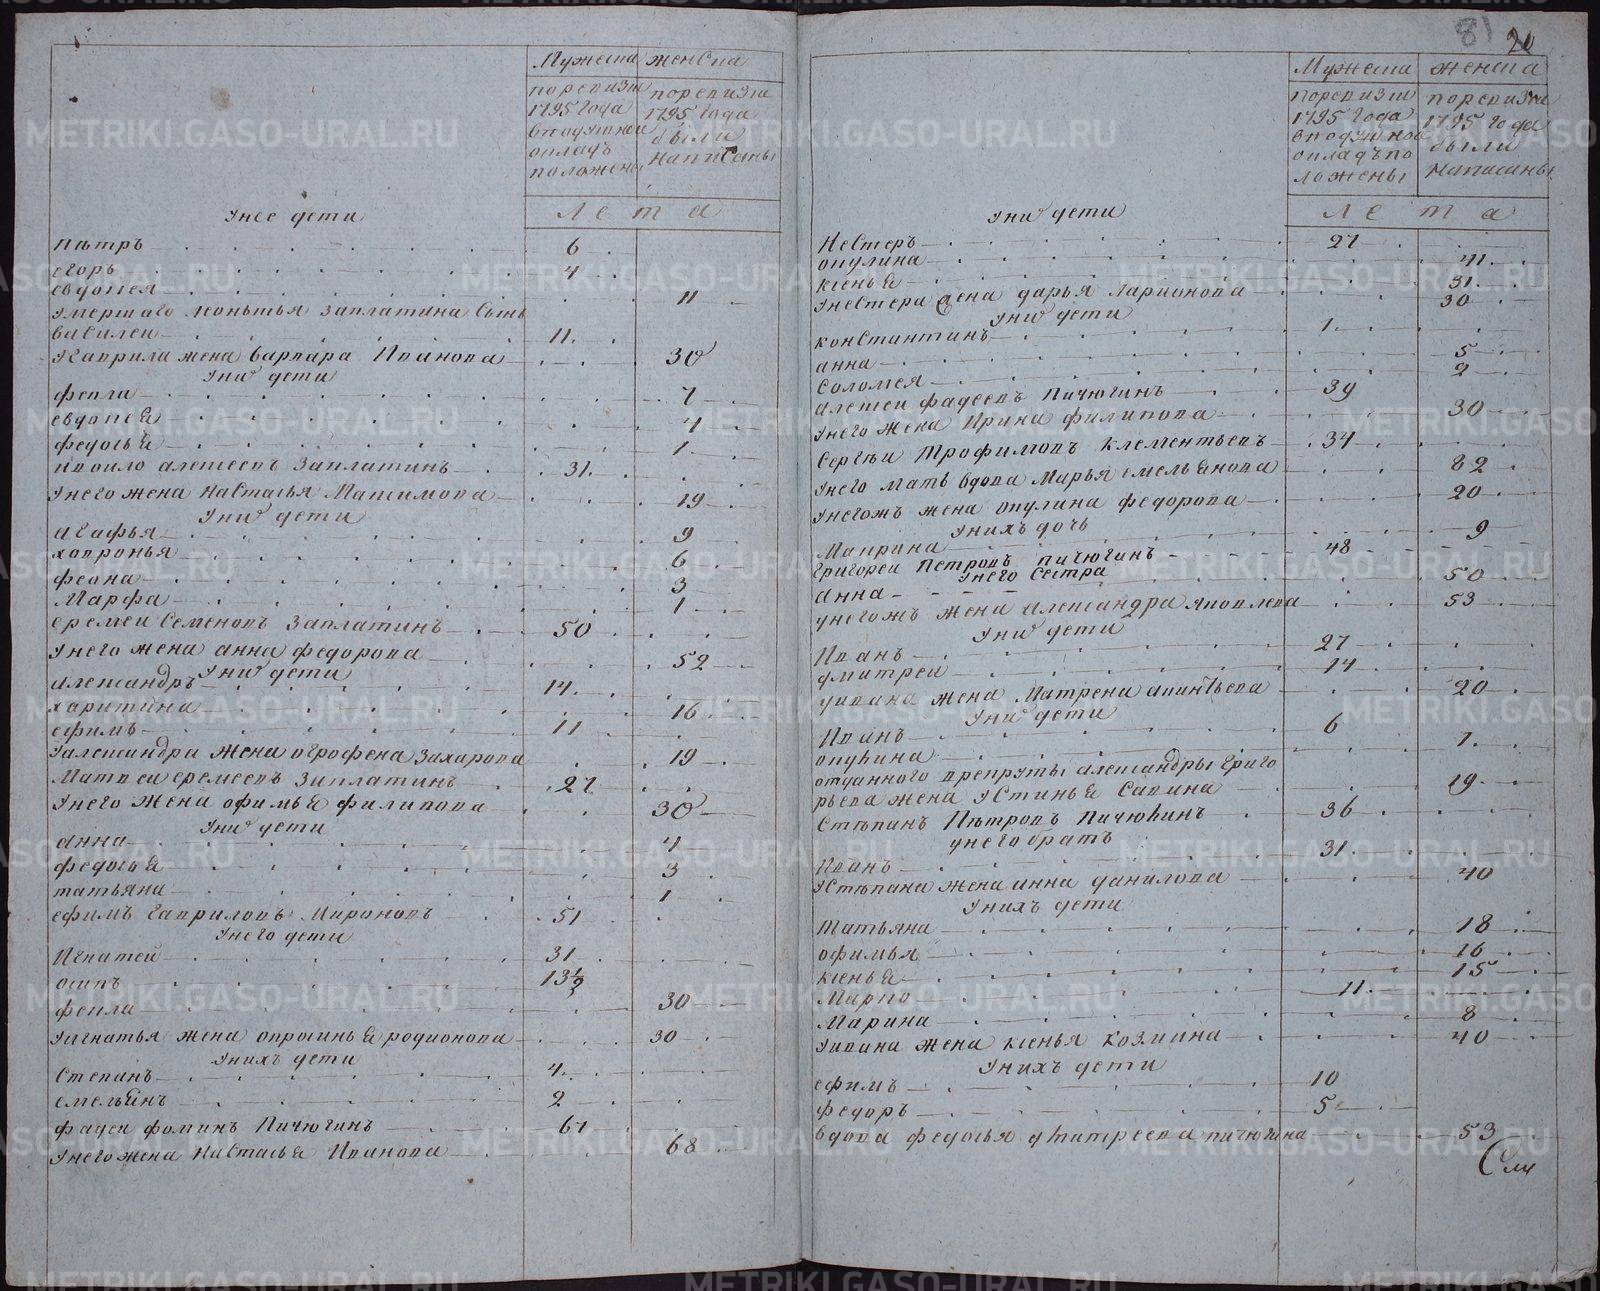 81 20
Мужеска женска
поревизии 1795 года вподушной окладъ положены
поревизии 1795 года были написаны
Лета
Унее дети
Пѣтръ 6
егоръ 4
евдокея 11
Умершаго леонтья Заплатина Сынъ
василеи 11
Угаврила жена варвара Иванова 30
Уних дети
фекла 7
евдокея 4
федосья 1
ивоило алексеевъ Заплатинъ 31
Унего жена Настасья Максимова 19
Уних дети
Агафья 9
ховронья 6
феона 3
Марфа 1
еремеи Семеновъ Заплатинъ 50
Унего жена анна федорова 52
Уних дети
александръ 14
харитина 16
ефимъ 11
Уалександра жена огрофена Захарова 19
Матвеи еремеевъ Заплатинъ 27
Унего жена офимья филипова 30
Уних дети
анна 4
федосья 3
татьяна 1
ефимъ Гавриловъ Мироновъ 51
Унего дети
Игнатей 31
осипъ 13 1/2
фекла 30
Уигнатья жена опросинья родионова 30
Унихъ дети
Степанъ 4
емельянъ 2
фадеи фоминъ Пичюгинъ 67
Унего жена Настасья Иванова 68
Мужеска женска
поревизии 1795 года вподушной окладъ положены
поревизии 1795 года были написаны
Лета
Уних дети
Нестеръ 27
окулина 41
ксенья 31
Унестера жена дарья Ларионова 30
Уних дети
константинъ 1
анна 5
Соломея 2
алексеи фадеевъ Пичюгинъ 39
Унего жена Ирина филипова 30
Сергѣи Трофимовъ Клементьевъ 34
Унего мать вдова Марья емельянова 82
Унегожъ жена окулина федорова 20
Унихъ дочь
Маврина 9
Григореи Петровъ пичюгинъ 48
Унего Сестра
анна 50
унегожъ жена александра яковлева 53
Уних дети
Иванъ 27
дмитреи 14
уивана жена Матрена акинтьева 20
Уних дети
Иванъ 6
окулина 1
отданного врекруты александры Григо
рьева жена Устинья Савина 19
Стѣпанъ Пѣтровъ Пичюгинъ 36
унего братъ
Иванъ 31
Устѣпана жена анна данилова 40
Унихъ дети
Татьяна 18
офимья 16
ксенья 15
Марко 11
Марина 8
Уивана жена ксенья козмина 40
Унихъ дети
ефимъ 10
федоръ 5
вдова федосья дмитреева пичюгина 53